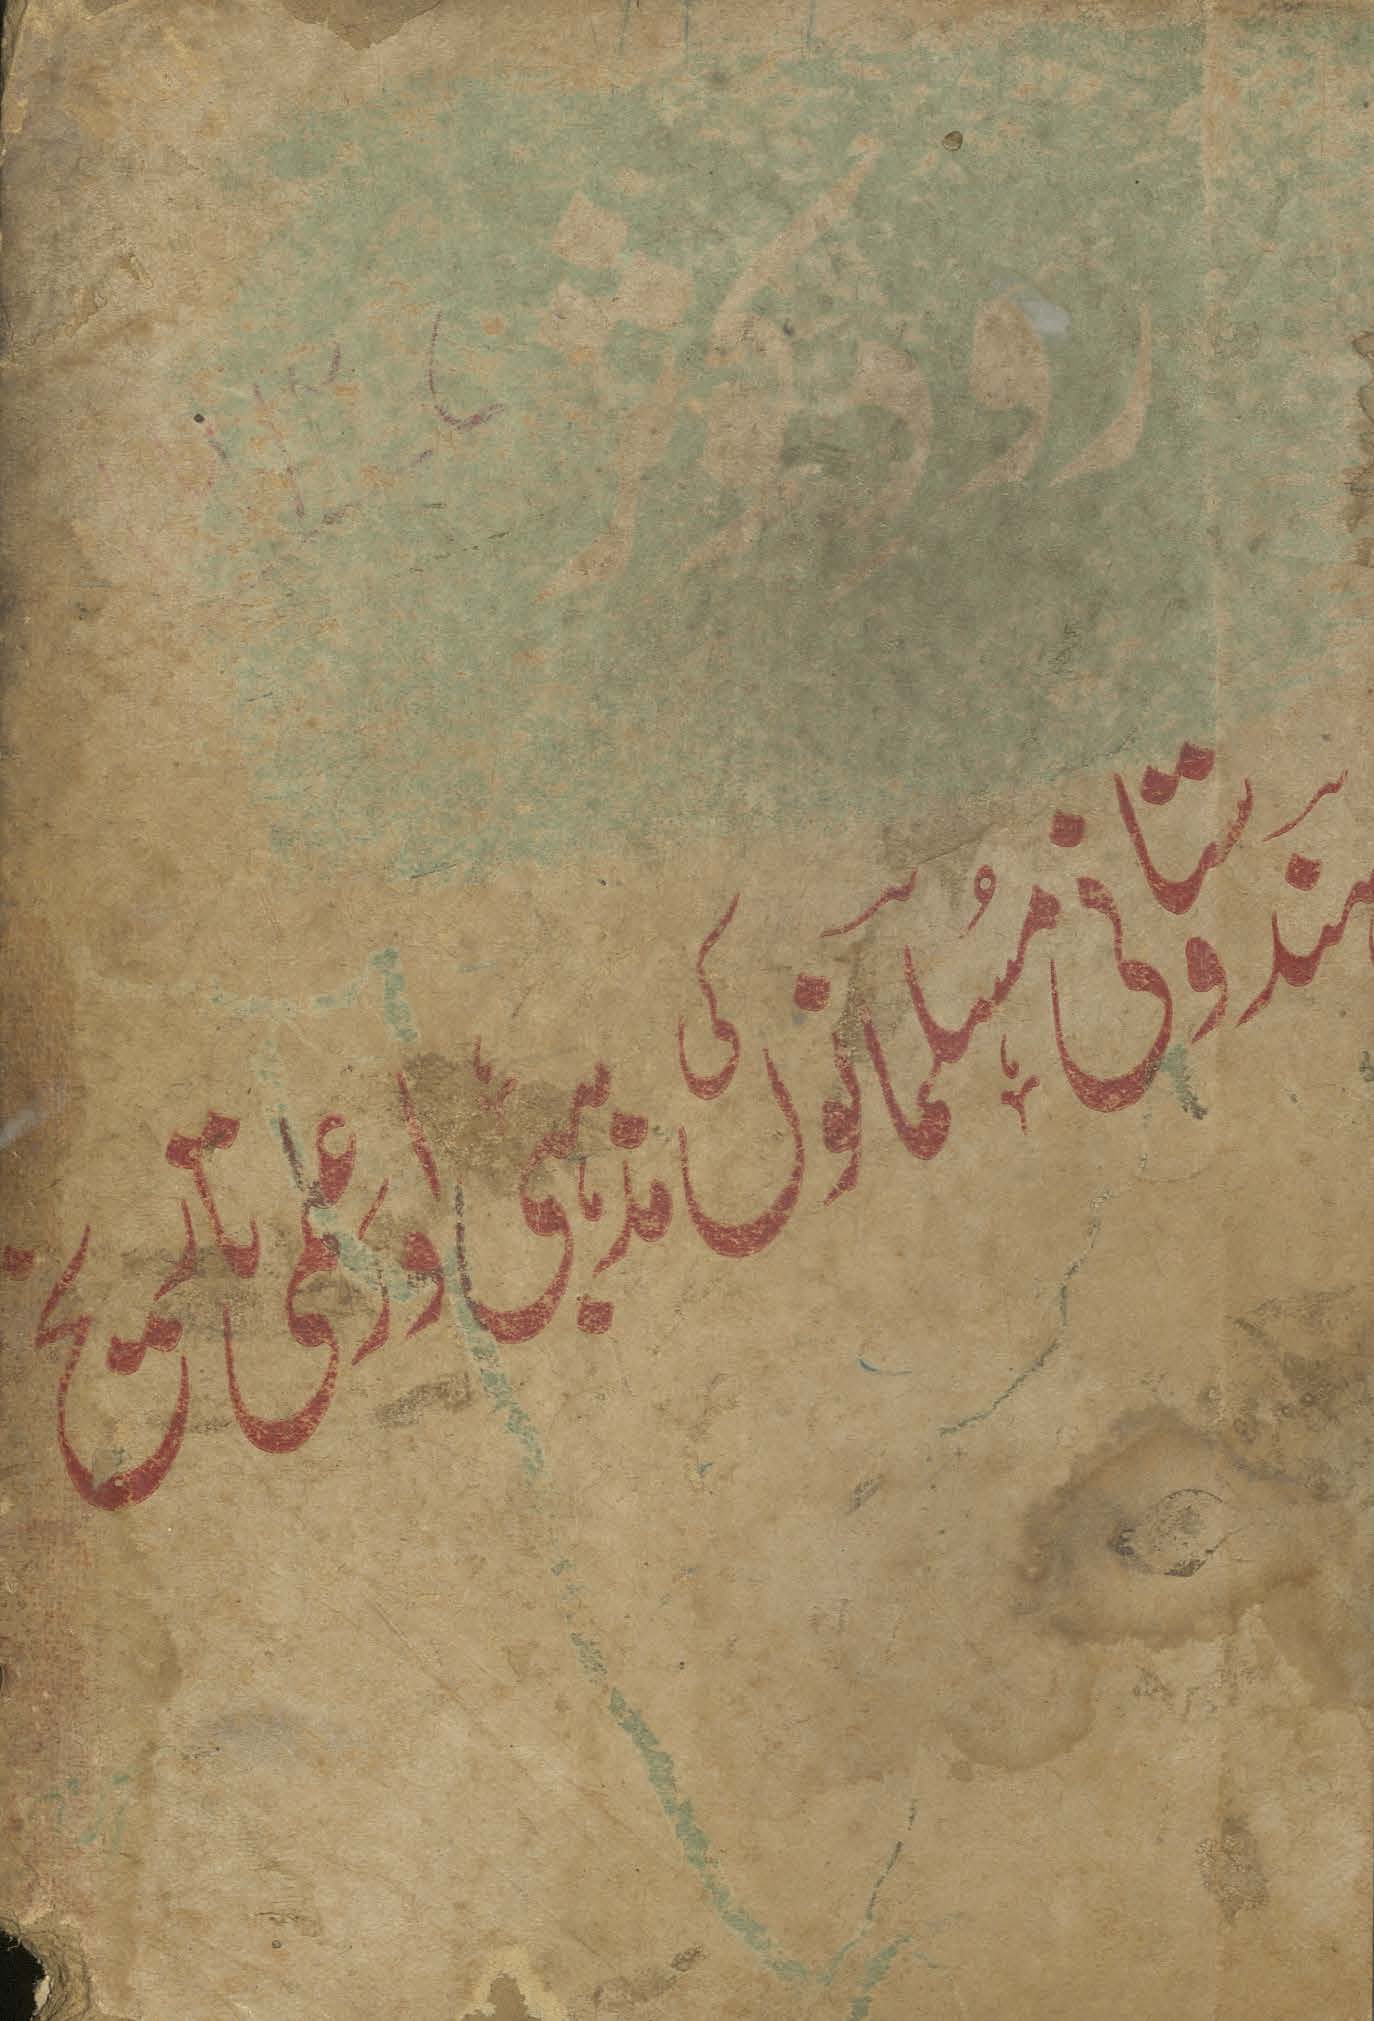 رودِ کوثر
ہندوستانی مسلمانوں کی مذہبی اور علمی تاریخ